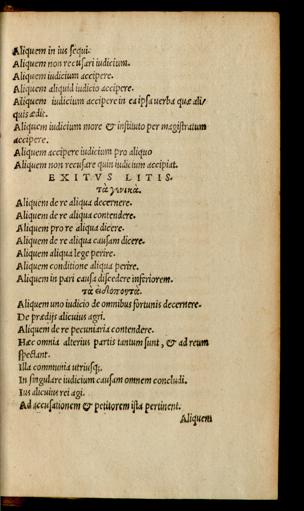 Aliquem in ius sequi.
Aliquem non recusari iudicium.
Aliquem iudicium accipere.
Aliquem aliquid iudicio accipere.
Aliquem iudicium accipere in ea ipsa verba quæ ali/
quis ædit.
Aliquem iudicium more & instituto per magistratum
accipere.
Aliquem accipere iudicium pro aliquo
Aliquem non recusare quin iudicium accipiat.
EXITVS LITIS.
τὰ γενικὰ.
Aliquem de re aliqua decernere.
Aliquem de re aliqua contendere.
Aliquem pro re aliqua dicere.
Aliquem de re aliqua causam dicere.
Aliquem aliqua lege perire.
Aliquem conditione aliqua perire.
Aliquem in pari causa discedere inferiorem.
τὰ
Aliquem uno iudicio de omnibus fortunis decernere.
De prædijs alicuius agri.
Aliquem de re pecuniaria contendere.
Hæc omnia alterius partis tantum sunt, & ad reum
spectant.
Illa communia utriusq;.
In singulare iudicium causam omnem concludi.
Ius alicuius rei agi.
Ad accusationem & petitorem ista pertinent.
Aliquem